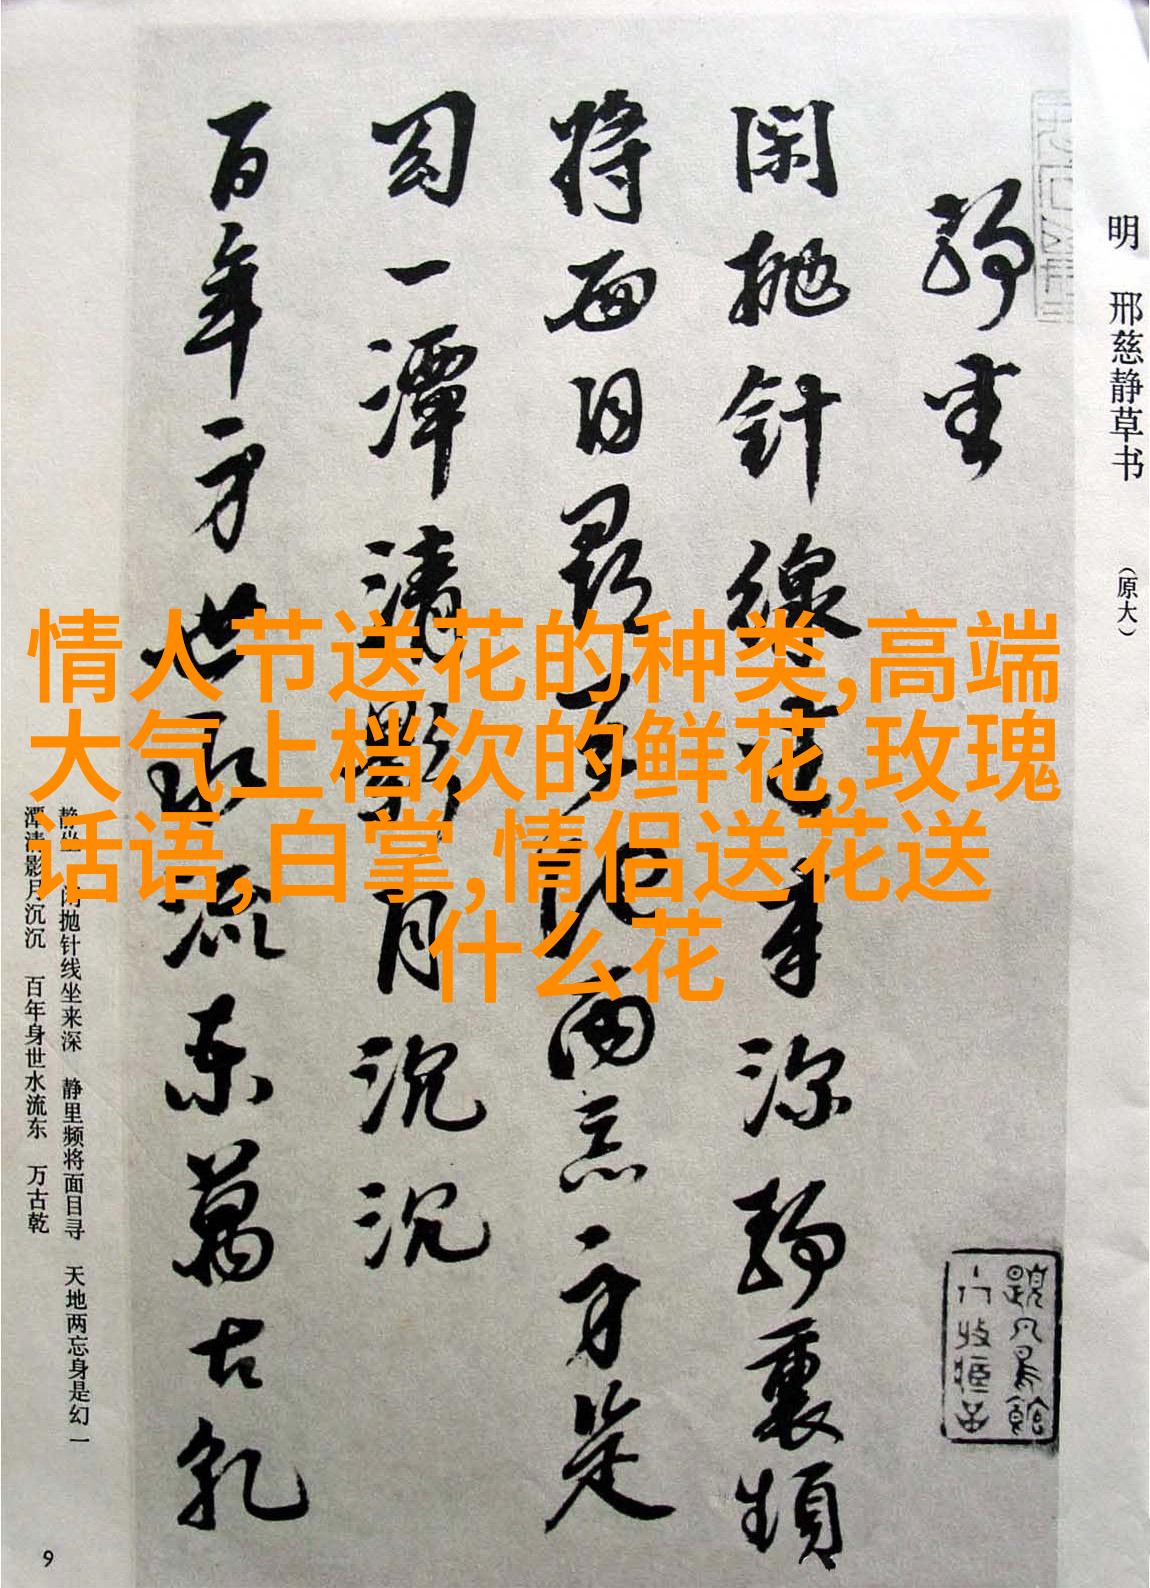 明 邢慈静草书 （原大）
静坐
闲抛针线坐来深静里频
将面目寻天地两忘身是
幻一潭清影月沉沉
百年身世水流东万古乾
情人节送花的种类,高端
大气上档次的鲜花,玫瑰
话语,白掌,情侣送花送
什么花
静坐 闲抛针线坐来深 静里频将面目寻 天地两忘身是幻 一
潭清影月沉沉 百年身世水流东 万古乾
9